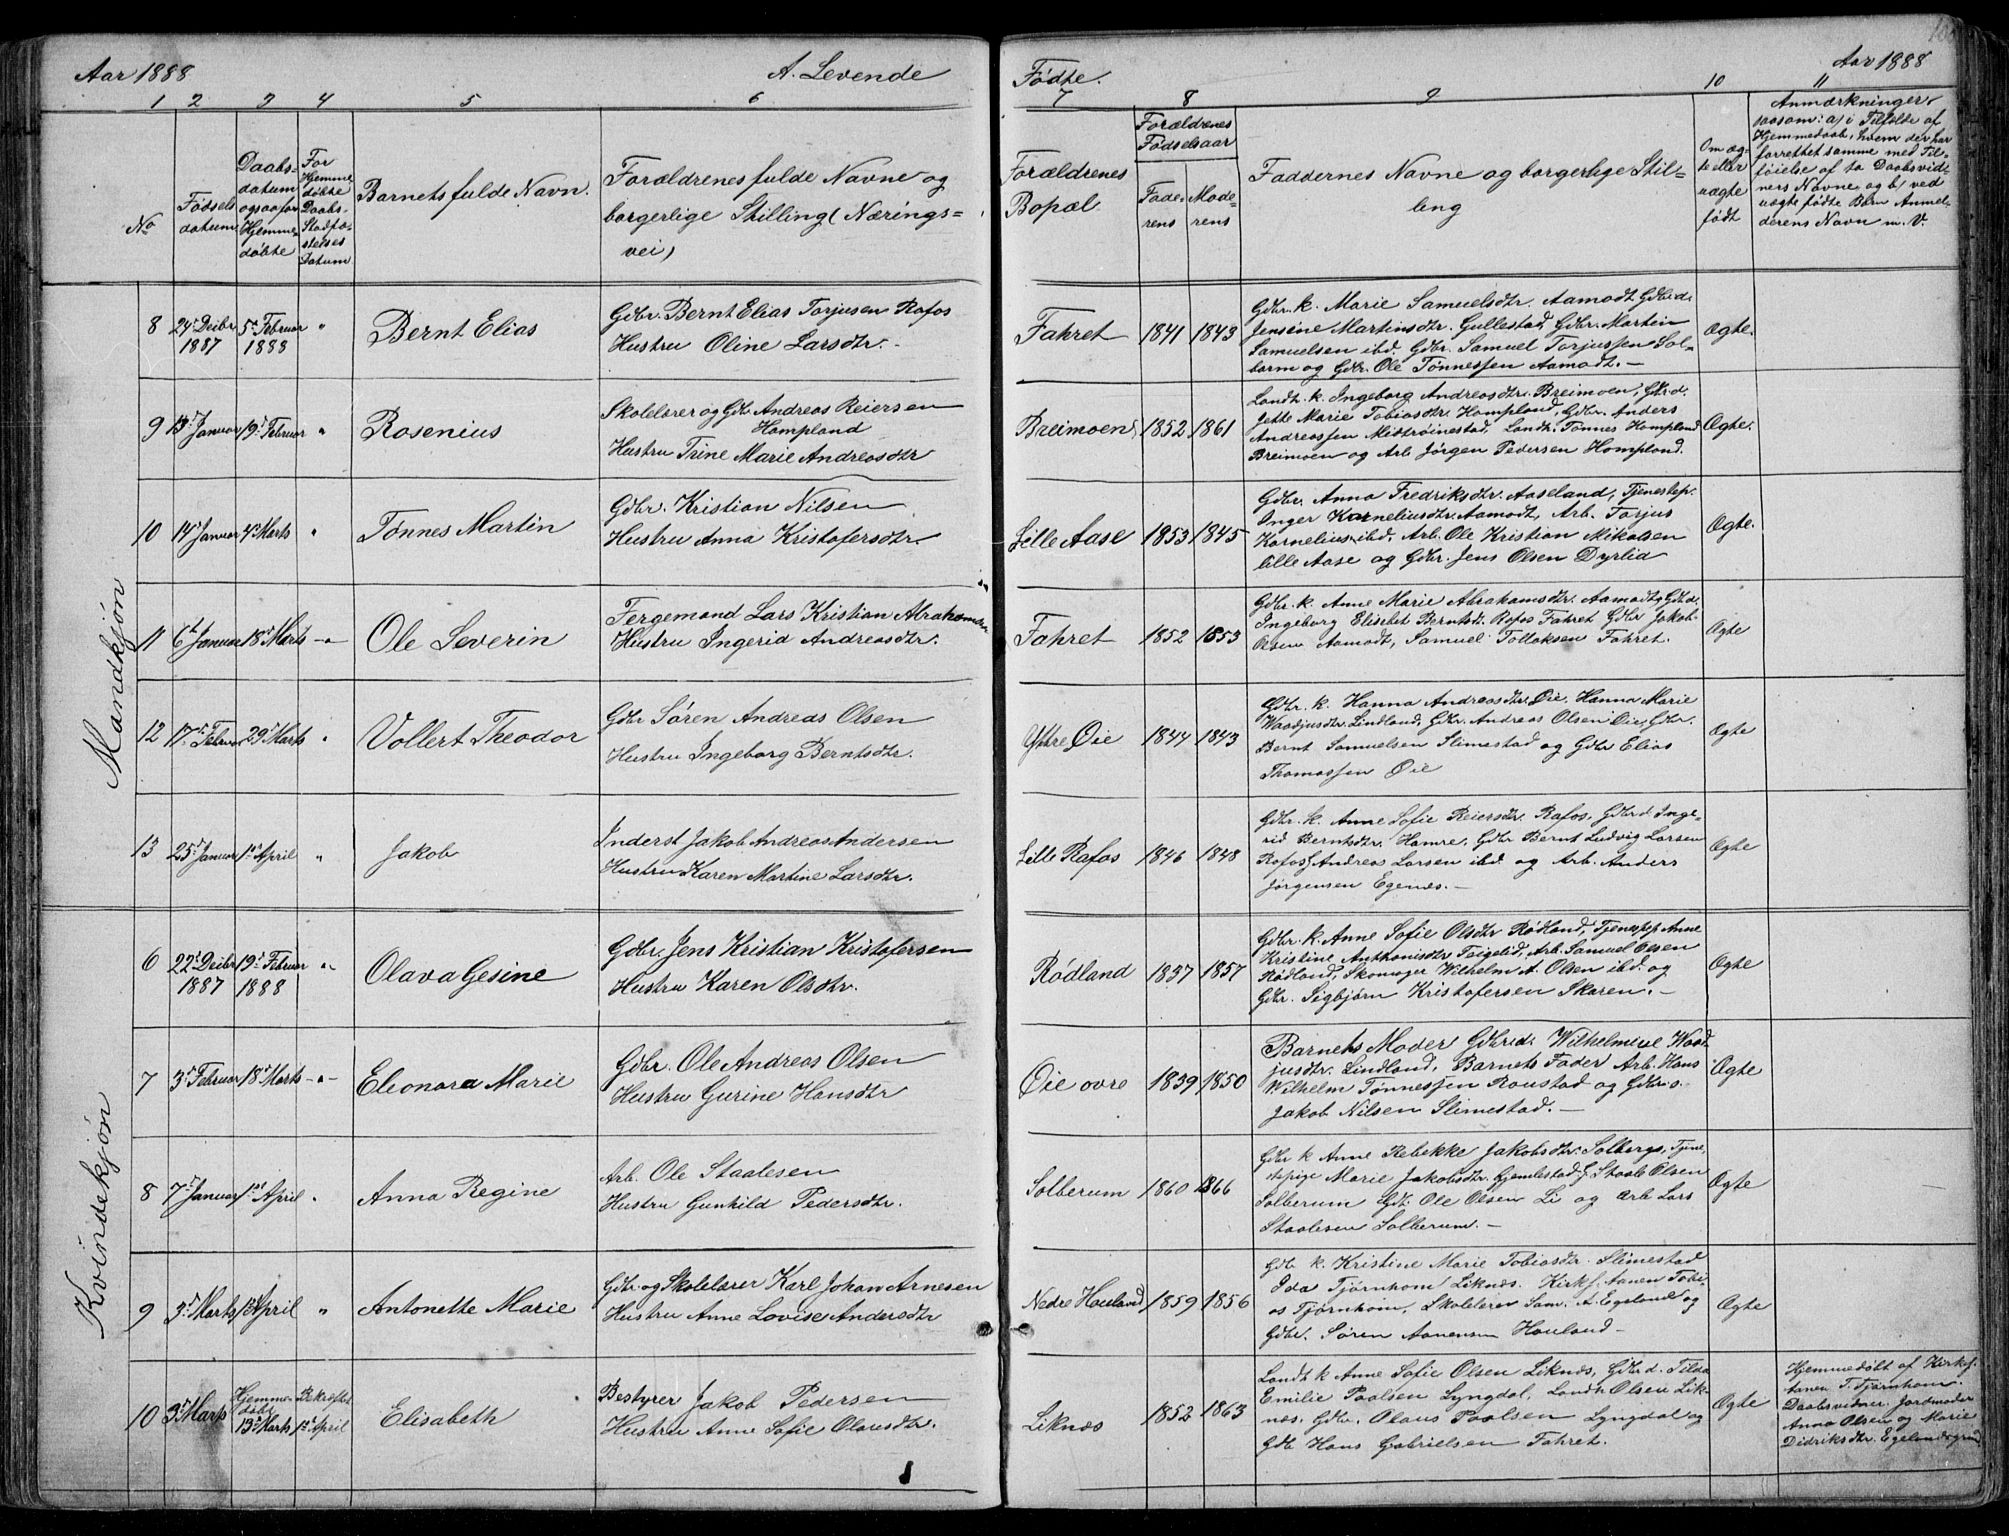 Aar 1888
A. Levende
Fødte.
Aar 1888
1 2 3 4 5 6
7 8 9 10 11
No
Fødsels
datum
Daabs-
datum
ogsaa for
Hjemme-
døbte
For
Hjemme
døbte
Daabs-
Stadfæ-
stelses
Datum
Barnets fulde Navn.
Forældrenes fulde Navne og
borgerlige Stilling (Nærings=
vei)
Forældrenes
Bopæl.
Forældrenes
Fødselsaar
Fade-
rens
Mode-
rens
Faddernes Navne og borgerlige Stil-
ling
Om æg-
te eller
uægte
født
Anmærkninger
saasom: a) i Tilfælde af
Hjemmedaab, hvem der har
forrettet samme med Til-
føielse af to Daabsvid-
ners Navne og b) ved
uægte fødte Børn Anmel-
derens Navn m. V.
Mandkjøn
8
24de Decbr
1887
5te Februar
1888
"
Bernt Elias
Gdbr. Bernt Elias Torjusen Rafos
Hustru Oline Larsdtr.
Fahret
1841
1843
Gdbr. k. Marie Samuelsdtr. Aamodt Gdbr.d.
Jensine Martinsdtr. Gullestad, Gdbr. Martin
Samuelsen ibd. Gdbr. Samuel Torjussen Sol-
berm og Gdbr. Ole Tønnessen Aamodt.
Ægte.
9
13de Januar
19de Februar
"
Rosenius
Skolelærer og Gdbr Andreas Reiersen
Hompland
Hustru Trine Marie Andreasdtr
Breimoen
1852
1861
Landh. k. Ingeborg Andreasdtr. Breimoen, Gdbr.d.
Jette Marie Tobiasdtr. Hompland, Gdbr. Anders
Andreassen Midtrøinestad, Landh. Tønnes Hompland
Breimoen og Arb. Jørgen Pedersen Hompland.
Ægte.
10
14de Januar
4de Marts
"
Tønnes Martin
Gdbr. Kristian Nilsen
Hustru Anna Kristofersdtr.
Lille Aase
1853
1845
Gdbr. Anna Fredriksdtr. Aaseland, Tjenestep.
Inger Korneliusdtr. Aamodt, Arb. Torjus
Kornelius ibd, Arb. Ole Kristian Mikalsen
lille Aase og Gdbr. Jens Olsen Dyrlid
Ægte.
11
6te Januar
18de Marts
"
Ole Severin
Fergemand Lars Kristian Abrahamsen
Hustru Ingerid Andreasdtr.
Fahret
1852
1853
Gdbr. k. Anne Marie Abrahamsdtr. Aamodt, Gdbr.d.
Ingeborg Elisabet Berntsdt. Rafos Fahret Gdbr Jakob
Olsen Aamodt, Samuel Tollaksen Fahret.
Ægte
12
17de Februar
29de Marts
"
Vollert Theodor
Gdbr Søren Andreas Olsen
Hustru Ingeborg Berntsdtr.
Yttre Øie
1844
1843
Gdbr. k. Hanna Andreasdtr. Øie, Hanna Marie
Waadjusdtr. Lindland, Gdbr. Andreas Olsen Øie, Gdbr.
Bernt Samuelsen Slimestad og Gdbr Elias
Thomassen Øie
Ægte
13
25de Januar
1ste April
"
Jakob
Inderst Jakob Andreas Andersen
Hustru Karen Martine Larsdtr.
Lille Rafos
1846
1848
Gdbr. k. Anne Sofie Reiersdtr. Rafos, Gdbr.d. Inge-
rid Berntsdtr. Hamre, Gdbr Bernt Ludvig Larsen
Rafos, Andreas Larsen ibd. og Arb. Anders
Jørgensen Egenæs.
Ægte
Kvindekjøn
6
22de Decbr
1887
19de Februar
1888
"
Olava Gesine
Gdbr. Jens Kristian Kristofersen
Hustru Karen Olsdtr.
Rødland
1837
1857
Gdbr. k. Anne Sofie Olsdtr Rødland, Tjenestep Anne
Kristine Anthonisdtr Feigelid, Arb. Samuel Olsen
Rødland, Skomager Wilhelm A. Olsen ibd. og
Gdbr. Sigbjørn Kristofersen Skaren.
Ægte
7
3de Februar
18de Marts
"
Eleonora Marie
Gdbr. Ole Andreas Olsen
Hustru Gurine Hansdtr
Øie øvre
1839
1850
Barnets Moder Gdbr.d. Wilhelmine Waad-
jusdtr. Lindland, Barnets Fader Arb. Hans
Wilhelm Tønnessen Raustad og Gdbr.s.
Jakob Nilsen Slimestad.
Ægte
8
7de Januar
1ste April
"
Anna Regine
Arb. Ole Staalesen
Hustru Gunhild Pedersdtr.
Solberum
1860
1866
Gdbr k Anne Rebekke Jakobsdtr. Solberg, Tjene-
stepige Marie Jakobsdtr. Gjemlestad, Staale Olsen
Solberum Gdbr. Ole Olsen Li og Arb Lars
Staalesen Solberum.
Ægte
9
3de Marts
1ste April
"
Antonette Marie
Gdbr. og Skolelærer Karl Johan Arnesen
Hustru Anne Lovise Andersdtr
Nedre Houland
1859
1856
Gdbr. k. Kristine Marie Tobiasdtr. Slimestad
Ida Tjørnhom Liknæs. Kirks. Aanen Tobi-
as Tjørnhom, Skolelærer Sam. A. Egeland og
Gdbr. Søren Aanensen Houland
Ægte
10
3de Marts
Hjemme-
døbt
13de Marts
Bekræftet
1ste April
Elisabeth
Bestyrer Jakob Pedersen
Hustru Anne Sofie Olausdtr.
Liknæs
1852
1863
Landh k Anne Sofie Olsen Liknæs, Gdbr.d. Tilda
Emilie Paalsen Lyngdal, Landh. Olsen Lik-
næs. Gdbr. Olaus Paalsen Lyngdal og
Gdb Hans Gabrielsen Fahret.
Ægte
Hjemmedøbt af Kirks.
Aanen T. Tjørnhom.
Daabsvidner Jordmoder
Anna Olsen og Marie
Didriksdtr. Egelandsgrund